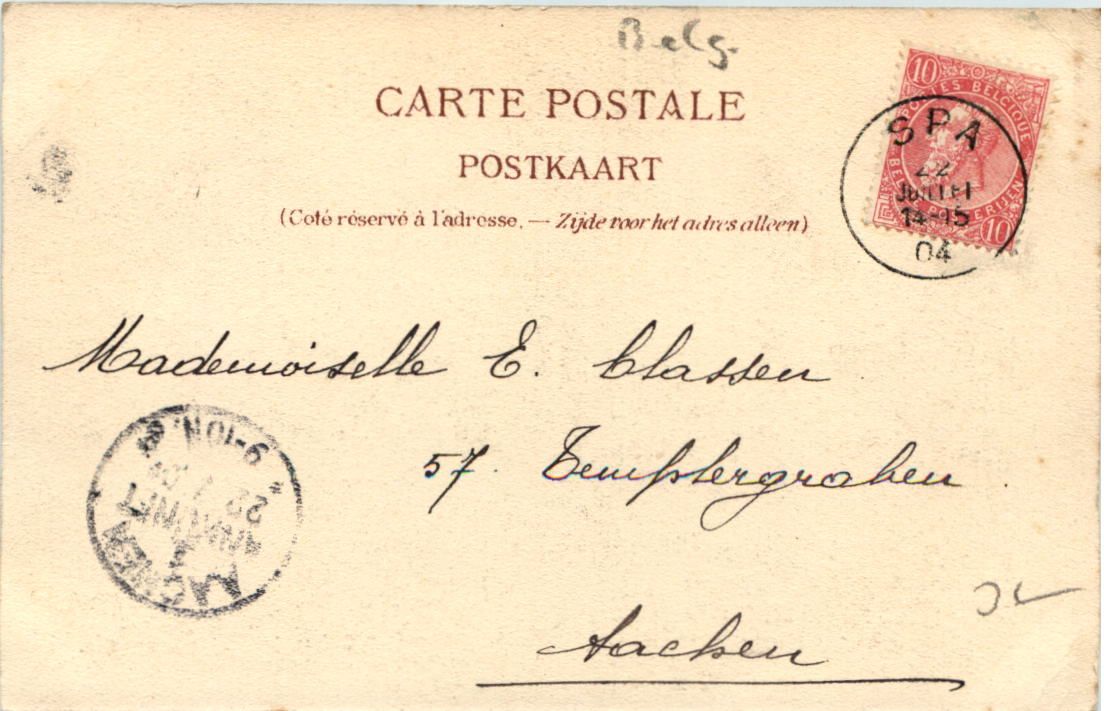 Belg.
CARTE POSTALE
POSTKAART
(Coté réservé à l'adresse. — Zijde voor het adres alleen)
10
POSTES BELGIQUE
BELG POSTERIJEN
10
SPA
22
JUILLET
14-15
04
Mademoiselle E. Classen
57. Templergraben.
Aachen
AACHEN
1
ANKUNFT
22
9-10N.